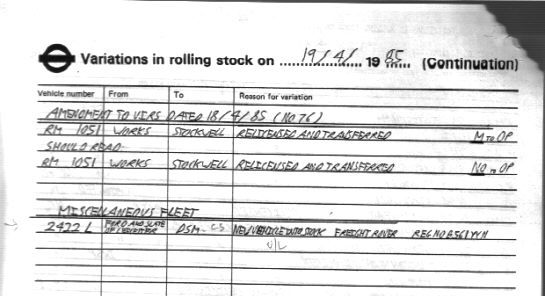 Variations in rolling stock on 19/4/ 1985 (Continuation)
Vehicle number From To Reason for variation
AMENDMENT TO VIRS DATED 18/4/85 (NO.76)
RM 1051 WORKS STOCKWELL RELICENSED AND TRANSFERRED M TO OP
SHOULD READ
RM 1051 WORKS STOCKWELL RELICENSED AND TRANSFERRED NO TO OP
MISCELLANEOUS FLEET
2422 L FORD AND SLATE OF LEICESTER DSM-CS NEW VEHICLE INTO STOCK FREIGHT ROVER REG NO B561
U/L